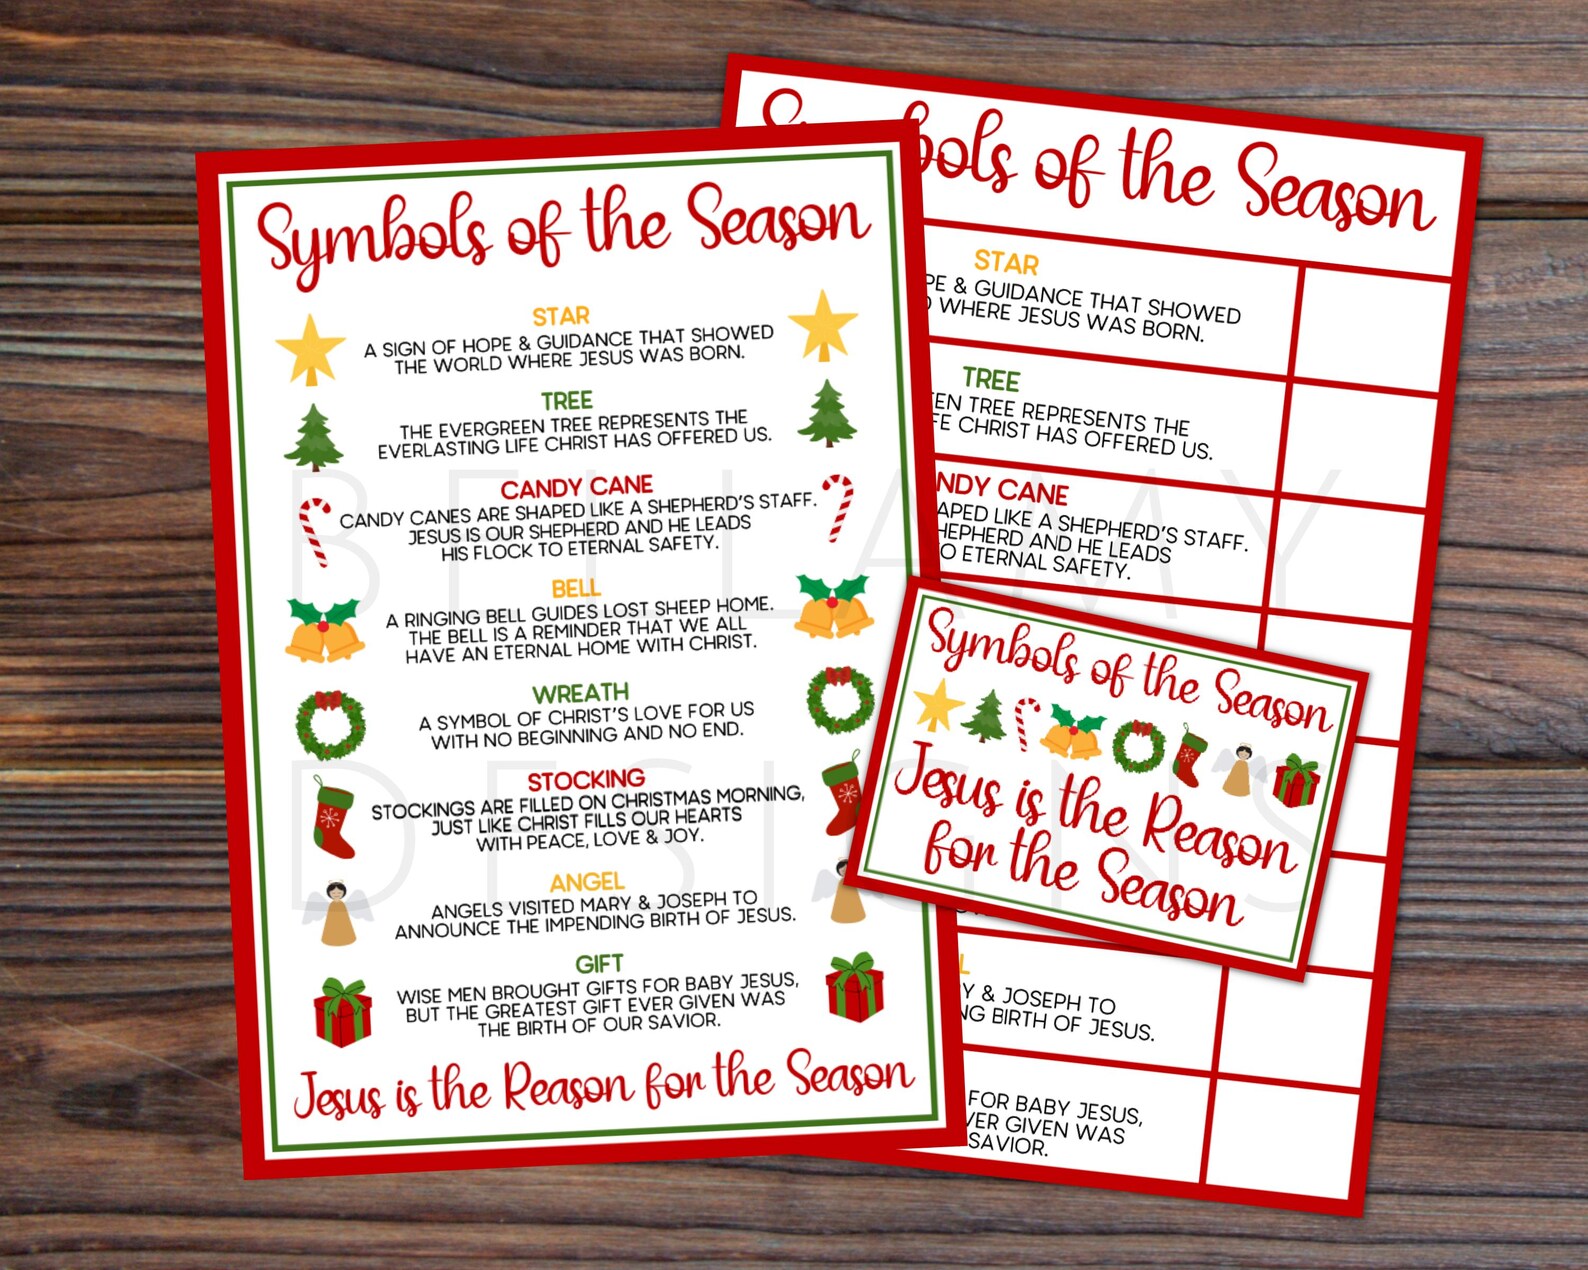 Symbols of the Season
STAR
A SIGN OF HOPE & GUIDANCE THAT SHOWED
THE WORLD WHERE JESUS WAS BORN.
TREE
THE EVERGREEN TREE REPRESENTS THE
EVERLASTING LIFE CHRIST HAS OFFERED US.
CANDY CANE
CANDY CANES ARE SHAPED LIKE A SHEPHERD'S STAFF.
JESUS IS OUR SHEPHERD AND HE LEADS
HIS FLOCK TO ETERNAL SAFETY.
BELL
A RINGING BELL GUIDES LOST SHEEP HOME.
THE BELL IS A REMINDER THAT WE ALL
HAVE AN ETERNAL HOME WITH CHRIST.
WREATH
A SYMBOL OF CHRIST'S LOVE FOR US
WITH NO BEGINNING AND NO END.
STOCKING
STOCKINGS ARE FILLED ON CHRISTMAS MORNING,
JUST LIKE CHRIST FILLS OUR HEARTS
WITH PEACE, LOVE & JOY.
ANGEL
ANGELS VISITED MARY & JOSEPH TO
ANNOUNCE THE IMPENDING BIRTH OF JESUS.
GIFT
WISE MEN BROUGHT GIFTS FOR BABY JESUS,
BUT THE GREATEST GIFT EVER GIVEN WAS
THE BIRTH OF OUR SAVIOR.
Jesus is the Reason for the Season
bols of the Season
STAR
PE & GUIDANCE THAT SHOWED
D WHERE JESUS WAS BORN.
TREE
EN TREE REPRESENTS THE
FE CHRIST HAS OFFERED US.
NDY CANE
APED LIKE A SHEPHERD'S STAFF.
HEPHERD AND HE LEADS
O ETERNAL SAFETY.
L
Y & JOSEPH TO
NG BIRTH OF JESUS.
FOR BABY JESUS,
VER GIVEN WAS
SAVIOR.
Symbols of the Season
Jesus is the Reason
for the Season
BELLAMY
DESIGNS